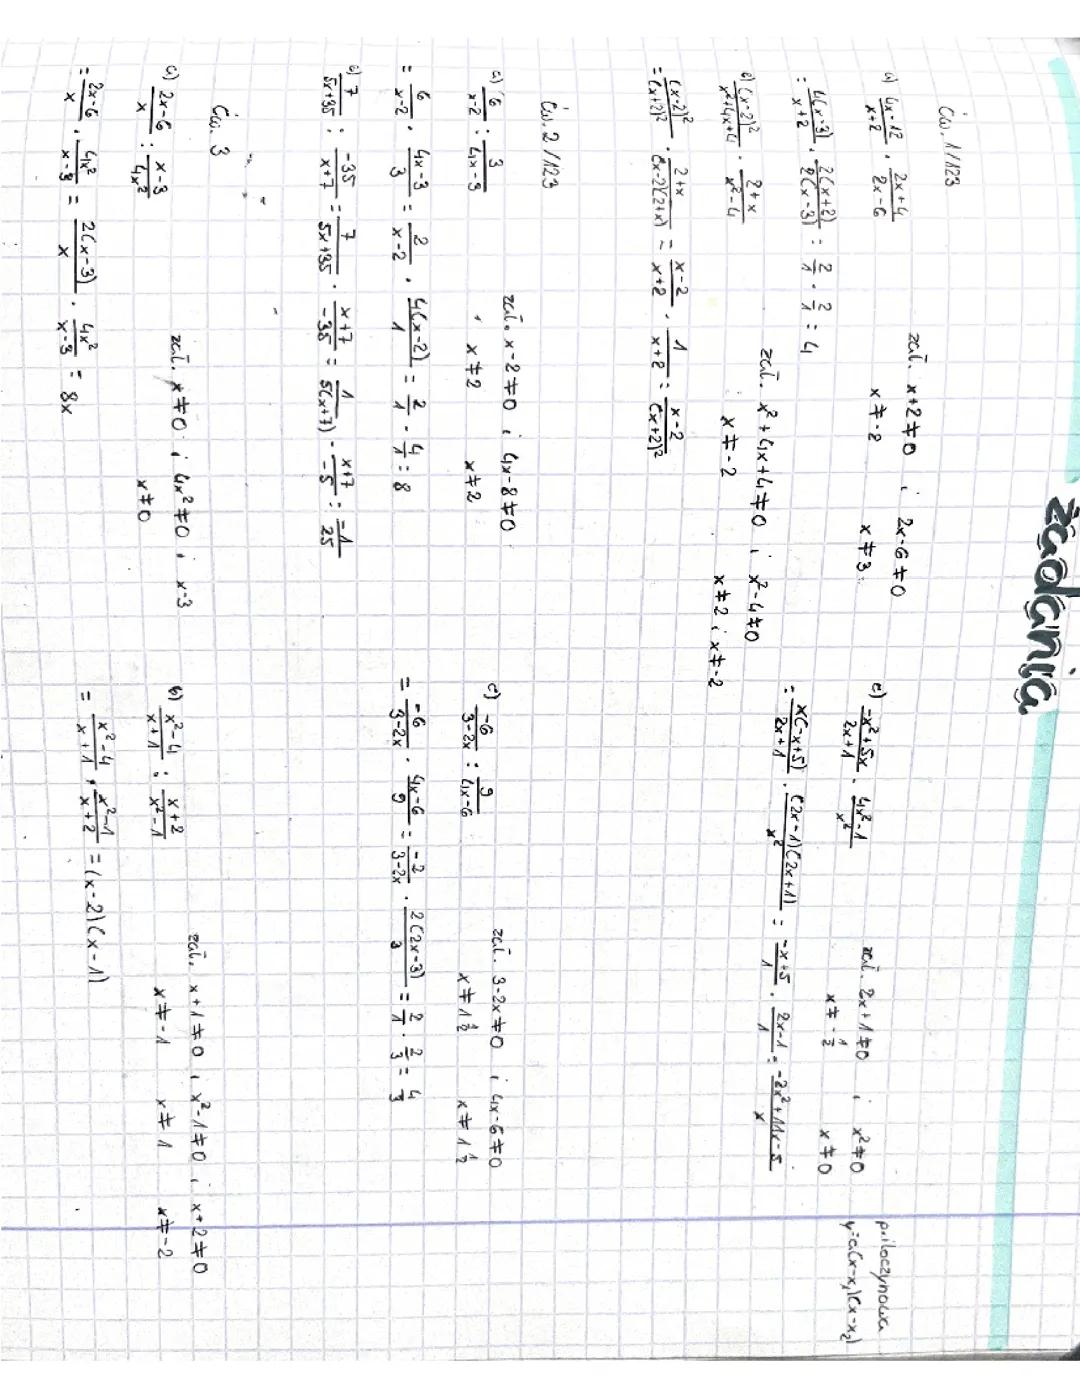 zadania
Ćw. 1/123
a) \frac{4x-12}{x+2} \cdot \frac{2x+4}{2x-6}
zał. x+2≠0 i 2x-6≠0
x≠-2 x≠3
= \frac{4(x-3)}{x+2} \cdot \frac{2(x+2)}{2(x-3)} = \frac{2}{1} \cdot \frac{2}{1} = 4
b) \frac{(x-2)^2}{x^2+4x+4} \cdot \frac{2+x}{x^2-4}
zał. x²+4x+4≠0 i x²-4≠0
x≠-2 x≠2 i x≠-2
= \frac{(x-2)^2}{(x+2)^2} \cdot \frac{2+x}{(x-2)(2+x)} = \frac{x-2}{x+2} \cdot \frac{1}{x+2} = \frac{x-2}{(x+2)^2}
c) \frac{-x^2+5x}{2x+1} \cdot \frac{4x^2-1}{x^2}
zał. 2x+1≠0 i x²≠0
x≠-\frac{1}{2} x≠0
= \frac{x(-x+5)}{2x+1} \cdot \frac{(2x-1)(2x+1)}{x^2} = \frac{-x+5}{1} \cdot \frac{2x-1}{1} = \frac{-2x^2+11x-5}{x}
p. iloczynowa
y=a(x-x₁)(x-x₂)
Ćw. 2/123
a) \frac{6}{x-2} : \frac{3}{4x-3}
zał. x-2≠0 i 4x-8≠0
x≠2 x≠2
= \frac{6}{x-2} \cdot \frac{4x-3}{3} = \frac{2}{x-2} \cdot \frac{4(x-2)}{1} = \frac{2}{1} \cdot \frac{4}{1} = 8
b) \frac{7}{5x+35} : \frac{-35}{x+7} = \frac{7}{5x+35} \cdot \frac{x+7}{-35} = \frac{1}{5(x+7)} \cdot \frac{x+7}{-5} = \frac{-1}{25}
c) \frac{-6}{3-2x} : \frac{9}{4x-6}
zał. 3-2x≠0 i 4x-6≠0
x≠1\frac{1}{2} x≠1\frac{1}{2}
= \frac{-6}{3-2x} \cdot \frac{4x-6}{9} = \frac{-2}{3-2x} \cdot \frac{2(2x-3)}{3} = \frac{2}{1} \cdot \frac{2}{3} = \frac{4}{3}
Ćw. 3
a) \frac{2x-6}{x} : \frac{x-3}{4x^2}
zał. x≠0 i 4x²≠0 i x-3
x≠0
= \frac{2x-6}{x} \cdot \frac{4x^2}{x-3} = \frac{2(x-3)}{x} \cdot \frac{4x^2}{x-3} = 8x
b) \frac{x^2-4}{x+1} : \frac{x+2}{x^2-1}
zał. x+1≠0 i x²-1≠0 i x+2≠0
x≠-1 x≠1 x≠-2
= \frac{x^2-4}{x+1} \cdot \frac{x^2-1}{x+2} = (x-2)(x-1)